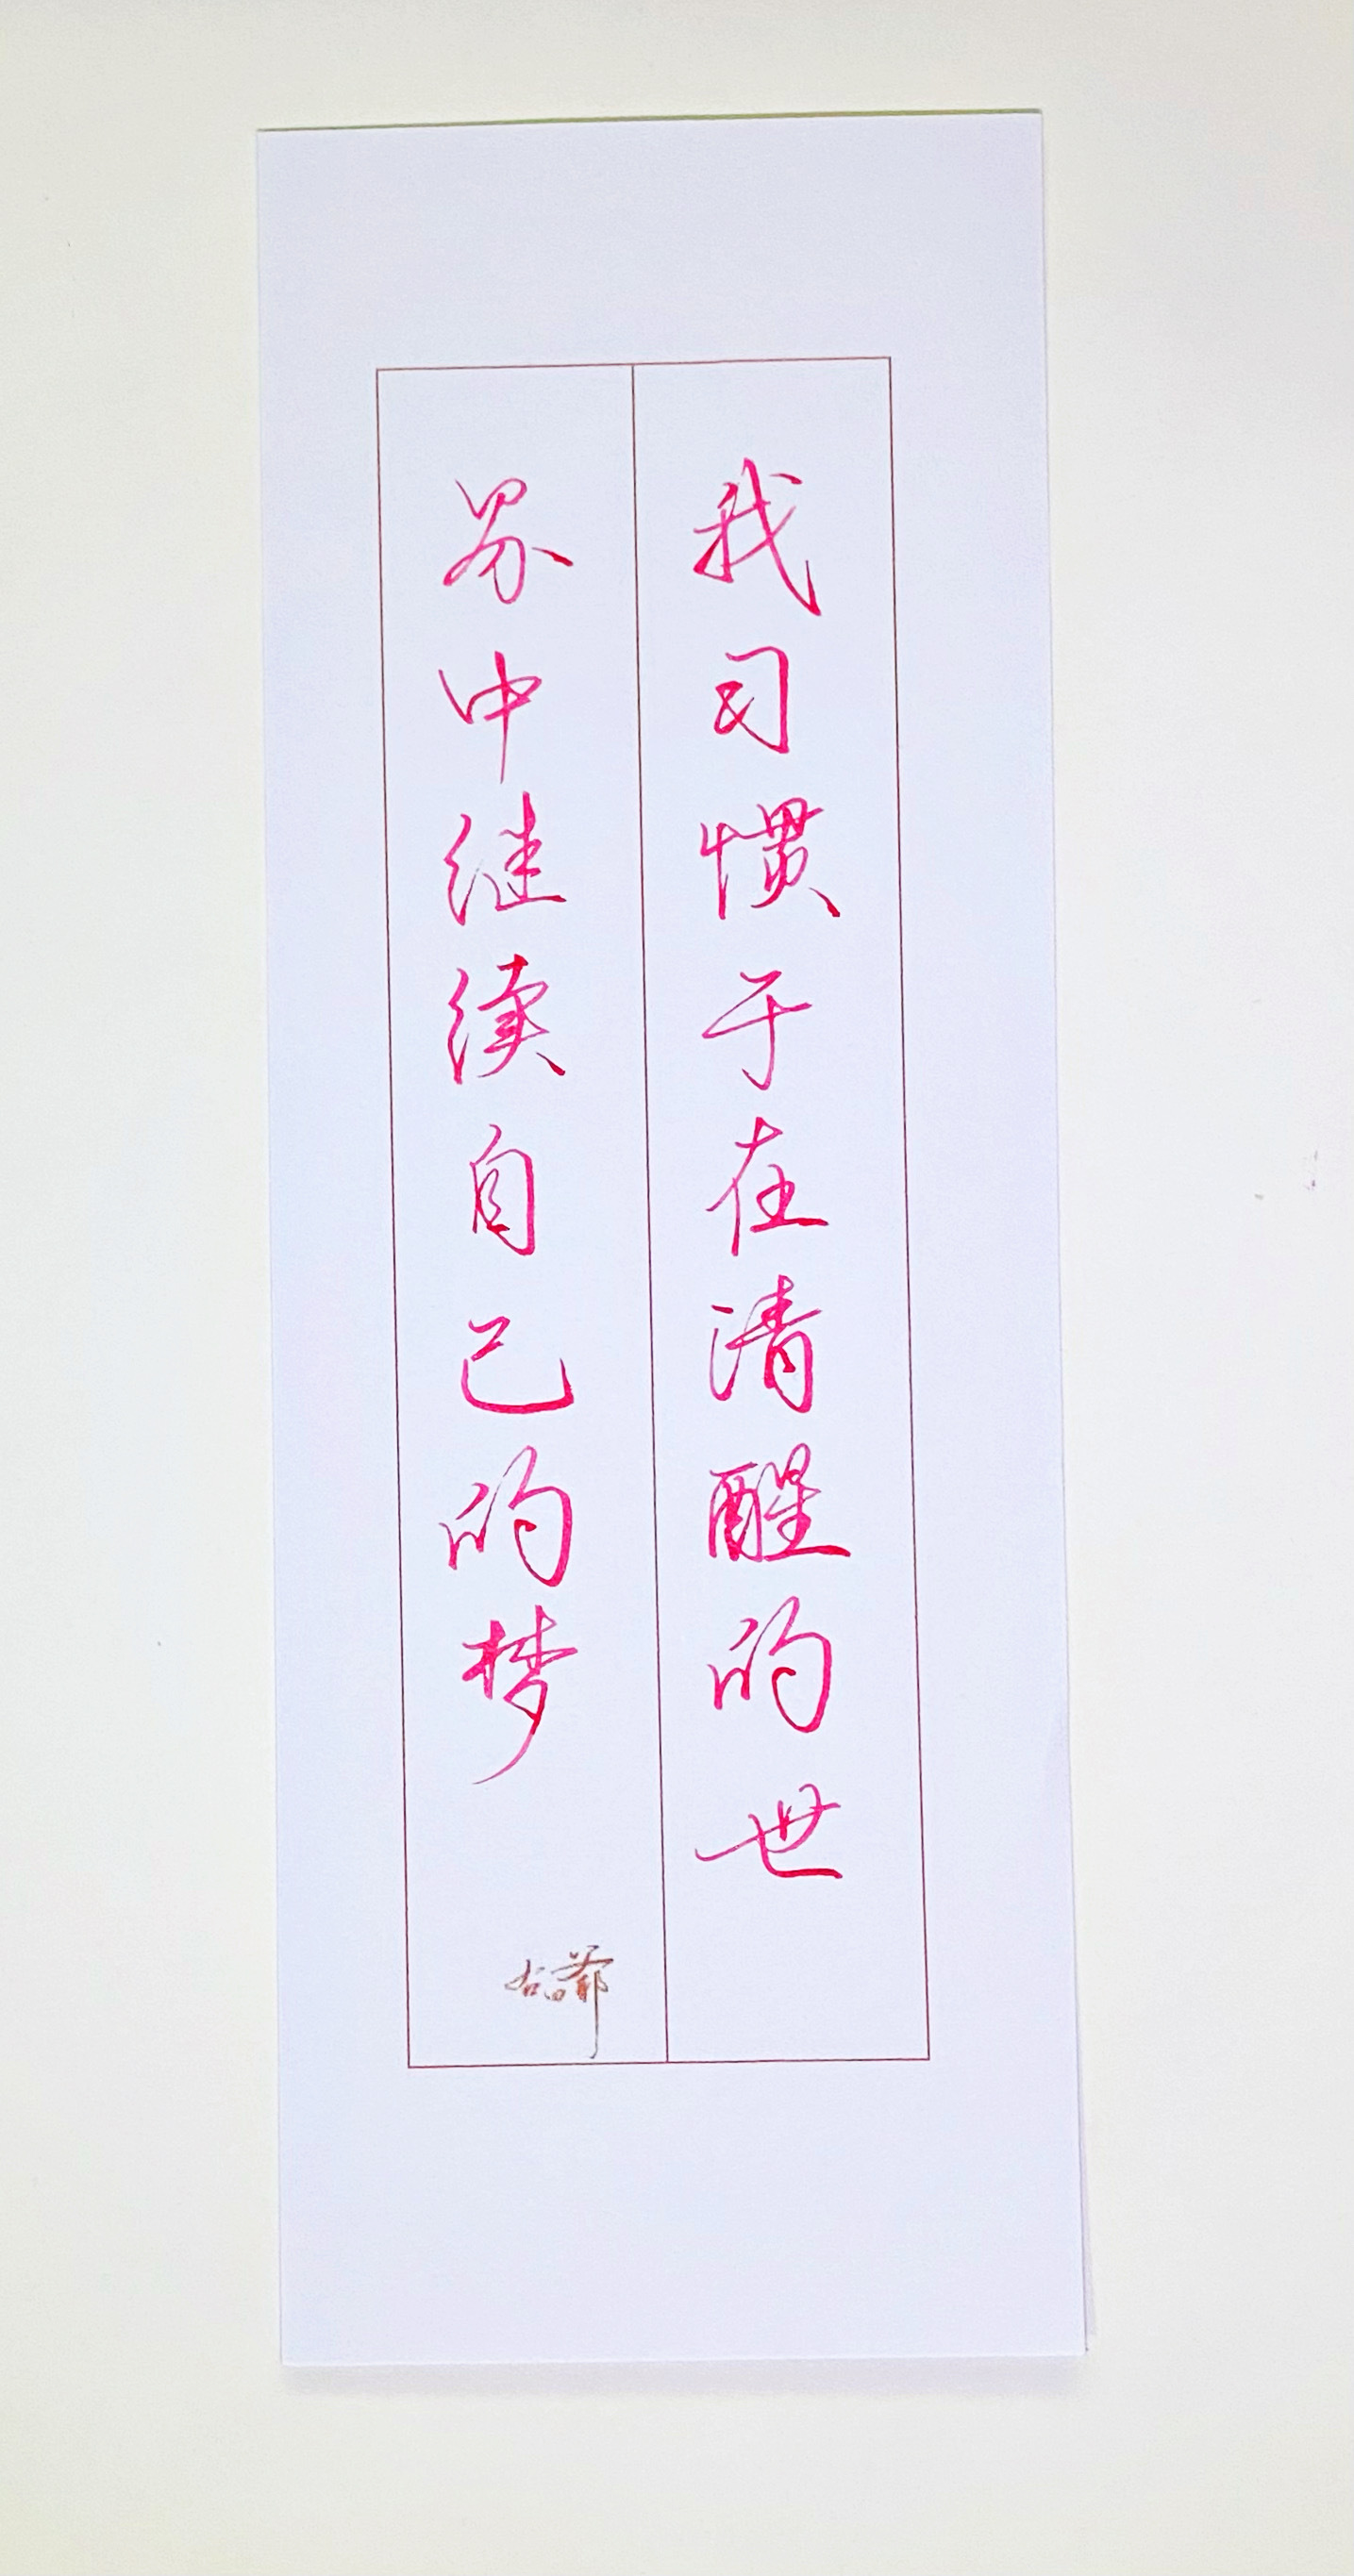 我习惯于在清醒的世
界中继续自己的梦